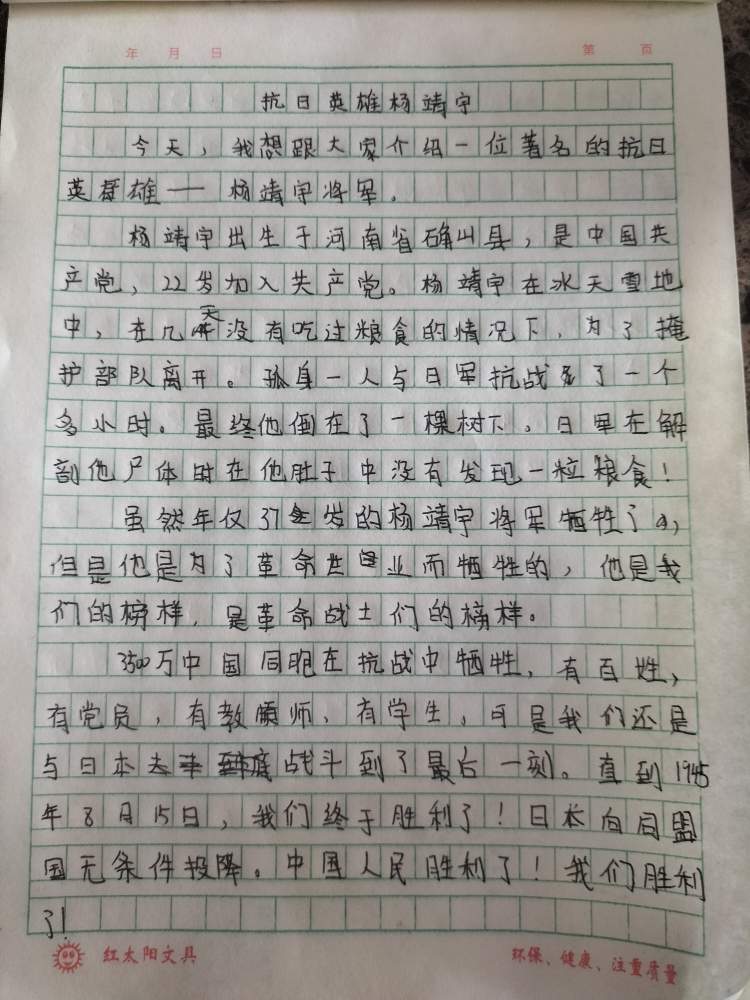 年 月 日 第 页
抗日英雄杨靖宇
今天，我想跟大家介绍一位著名的抗日
英雄——杨靖宇将军。
杨靖宇出生于河南省确山县，是中国共
产党，22岁加入共产党。杨靖宇在冰天雪地
中，在几天没有吃过粮食的情况下，为了掩
护部队离开。孤身一人与日军抗战了一个
多小时。最终他倒在了一棵树下。日军在解
剖他尸体时在他肚子中没有发现一粒粮食！
虽然年仅37岁的杨靖宇将军牺牲了，
但是他是为了革命业而牺牲的，他是我
们的榜样，是革命战士们的榜样。
3500万中国同胞在抗战中牺牲，有百姓，
有党员，有教师，有学生，可是我们还是
与日本战斗到了最后一刻。直到1945
年8月15日，我们终于胜利了！日本向同盟
国无条件投降。中国人民胜利了！我们胜利
了！
红太阳文具 环保、健康、注重质量